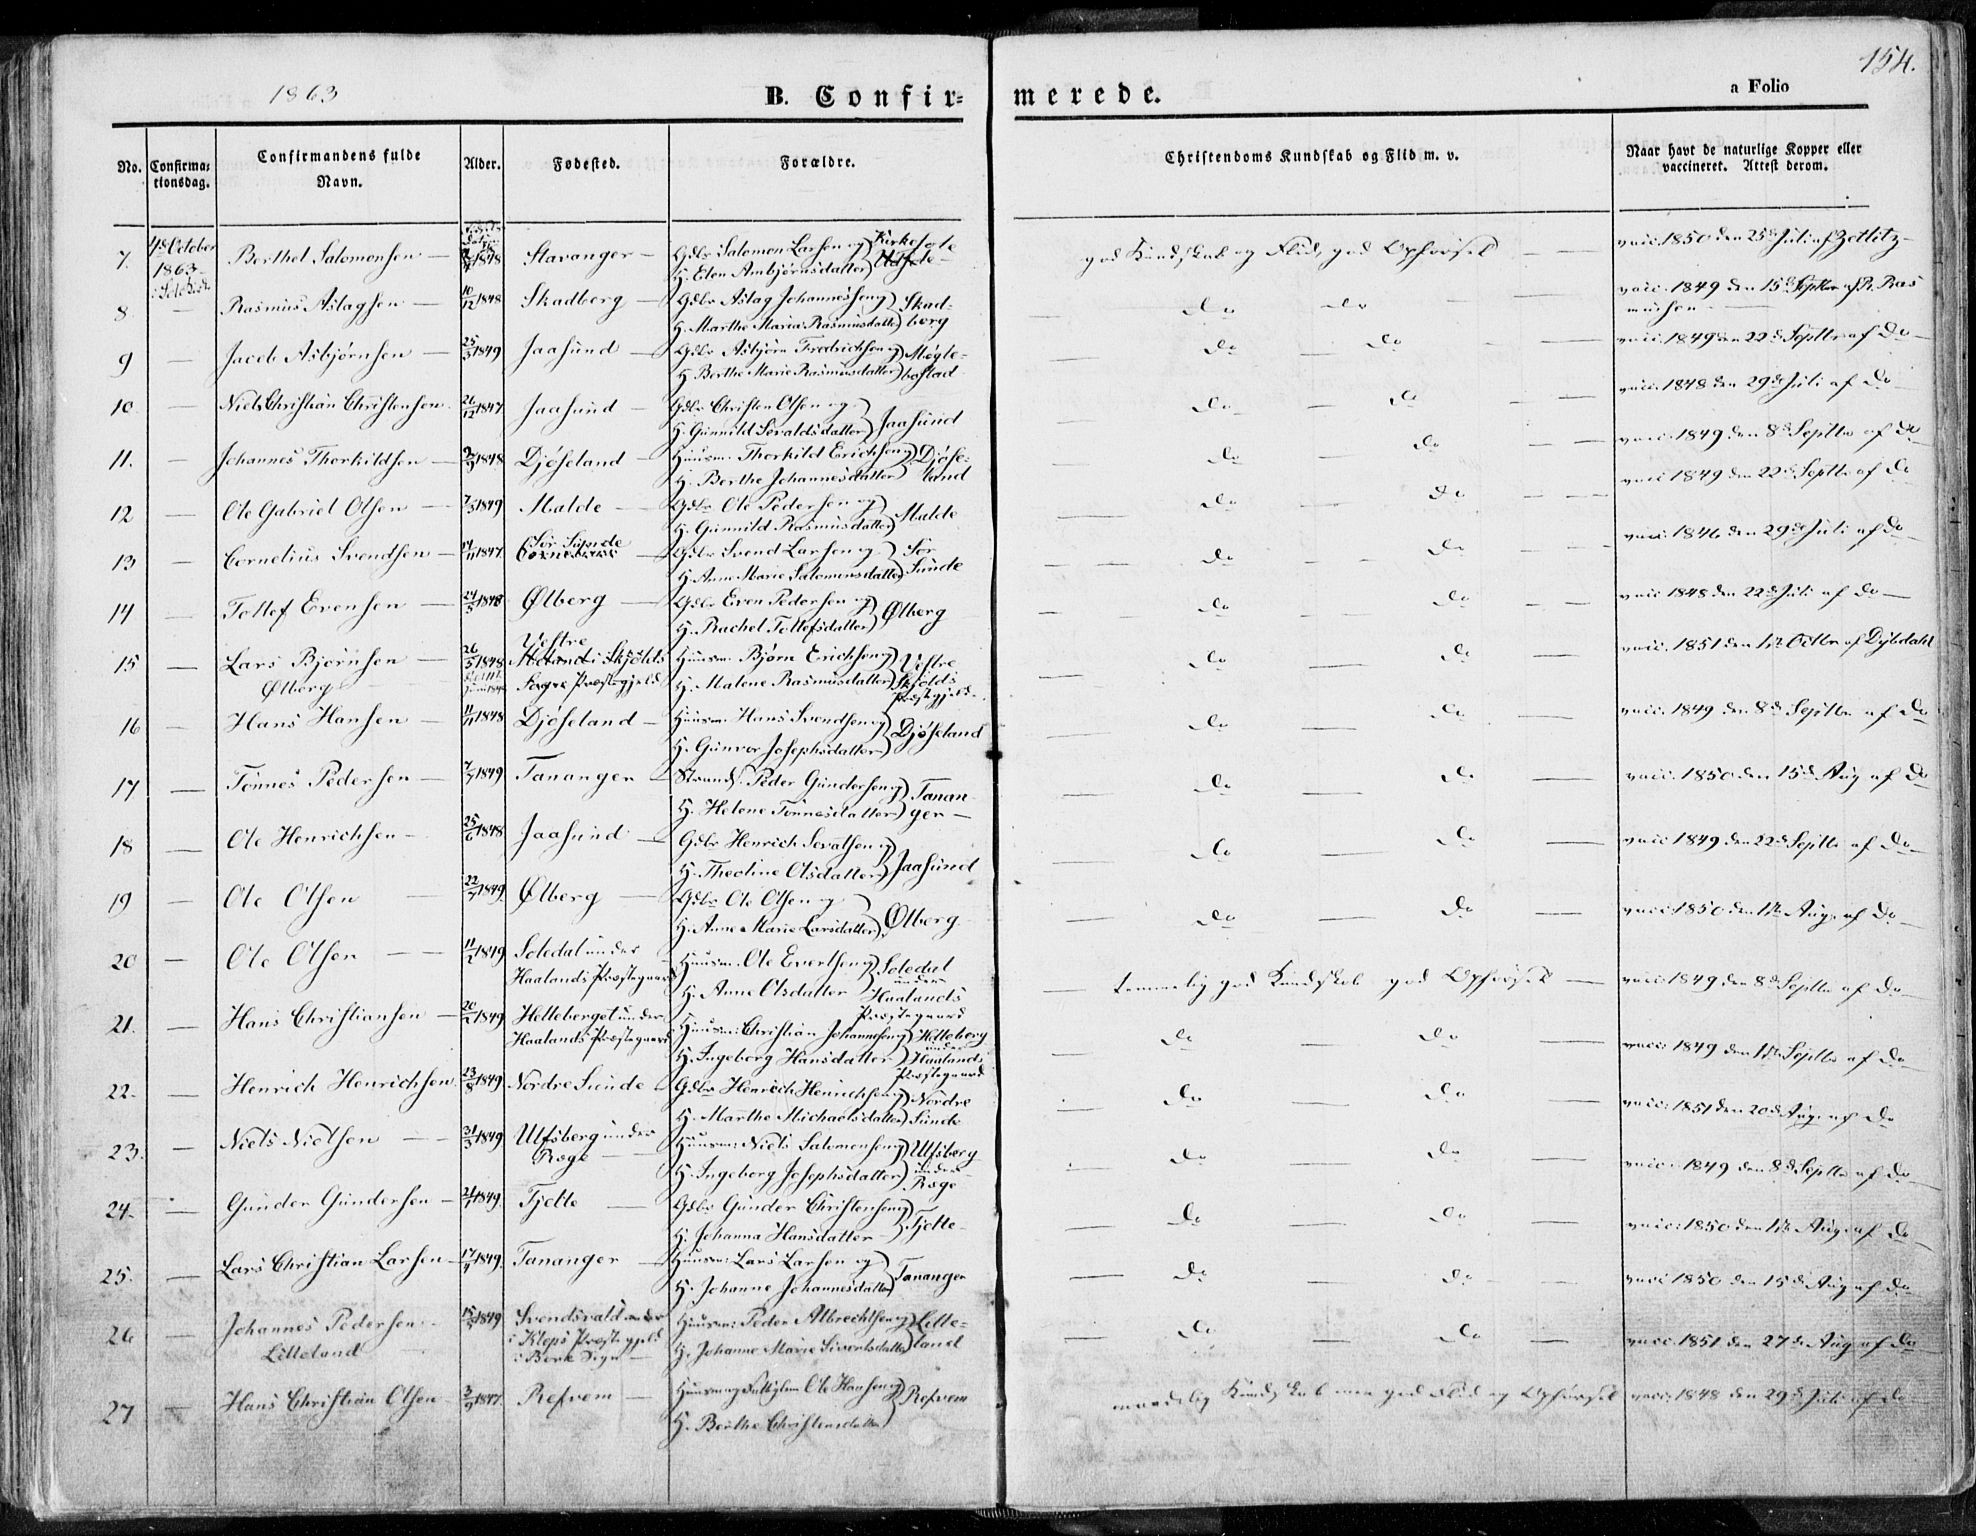 1863
B. Confir=
merede.
154.
a Folio
No.
Confirma=
tionsdag.
Confirmandens fulde
Navn.
Alder.
Fødested.
Forældre.
Christendoms Kundskab og Flid m. v.
Naar havt de naturlige Kopper eller
vaccineret. Attest derom.
7. 4de October Berthel Salomonsen — 1848 Stavanger — Gdbr Salomon Larsen og Kirkesole god Kundskab og Flid, god Opførsel — vacc. 1850 den 25de Juli af Zetlitz —
1863 — H. Elen Ambjørnsdatter
i Sole K.
8 — Rasmus Aslagsen — 10/12 1848 Skadberg — Gdbr Aslag Johannessen og Skad= — Do Do — vacc. 1849 den 15de Septbr af R. Ras
H. Marthe Maria Rasmusdatter berg mussen —
9 — Jacob Asbjørnsen — 25/3 1849 Jaasund — Gdbr Asbjørn Fredrichsen og Møgle= — Do — Do — vacc. 1849 den 22de Septbr af Do —
H. Berthe Marie Rasmusdatter bostad
10 — Niels Christian Christensen 26/12 1847 Jaasund — Gdbr Christen Olsen og Do — Do — vacc. 1848 den 29de Juli af Do
H. Gunnild Sevaldsdatter Jaasund
11. — Johannes Thorkildsen — 1848 Djøseland — Huusm. Thorkild Erichsen og Djøse= — Do — Do — vacc. 1849 den 8de Septbr af Do
H. Berthe Johannesdatter land
12 — Ole Gabriel Olsen — 7/3 1849 Malde — Gdbr Ole Pedersen og — Do — Do — vacc. 1849 den 22de Septbr af Do
H. Gunnild Rasmusdatter Malde
13 — Cornelius Svendsen — 14/11 1847 Sør Sunde — Gdbr Svend Larsen og Sør — Do — Do — vacc. 1846 den 29de Juli af Do
H. Anne Marie Salomonsdatter Sunde
14 — Tollef Evensen — 24/5 1848 Ølberg — Gdbr Even Pedersen og — Do — Do — vacc. 1848 den 22de Juli af Do —
H. Rachel Tollefsdatter Ølberg
15 — Lars Bjørnsen — 26/5 1848 Vestre i Skjolds Huusm: Bjørn Erichsen og Vestre — Do — Do vacc. 1851 den 1ste Octbr af Dybdahl
Ølberg — Præstegjeld H. Malene Rasmusdatter Skjolds
Præstgjeld
16 — Hans Hansen — 11/11 1848 Djøseland — Huusm. Hans Svendsen og — Do — Do — vacc. 1849 den 8de Septbr af Do
H. Gunvor Josephsdatter Djøseland
17 — Tønnes Pedersen — 1849 Tananger — Strands. Peder Gundersen og Tanan= — Do — Do — vacc. 1850 den 15de Aug af Do
H. Helene Tønnesdatter ger —
18 — Ole Henrichsen — 25/6 1848 Jaasund — Gdbr Henrich Sevatsen og — Do — Do — vacc. 1849 den 22de Septbr af Do
H. Theoline Olsdatter Jaasund
19 — Ole Olsen — 1849 Ølberg — Gdbr Ole Olsen og — Do — Do — vacc. 1850 den 1ste Aug. af Do
H. Anne Marie Larsdatter Ølberg
20 — Ole Olsen — 1849 Soledal under Huusm. Ole Evertsen og Soledal — temmelig god Kundskab god Opførsel — vacc. 1849 den 8de Septbr af Do
Haalands Præstegaard H. Anne Olsdatter under
Haalands
Præstegaard
21. — Hans Christiansen — 1849 Helleberget under Huusm: Christian Johannesen og Helleberg — Do — Do — vacc. 1849 den 1ste Septbr af Do
Haalands Præstegaard H. Ingeborg Hansdatter under
Haalands
Præstegaard
22. — Henrich Henrichsen 23/8 1849 Nordre Sunde Gdbr Henrich Henrichsen og Nordre — Do — Do — vacc. 1851 den 20de Aug. af Do
H. Marthe Michaelsdatter Sunde
23. — Niels Nielsen — 31/3 1849 Ulfsberg under Huusm: Niels Salomonsen og Ulfsberg — Do — Do — vacc. 1849 den 8de Septbr af Do
Rege — H. Ingeborg Josephsdatter under
Rege
24. — Gunder Gundersen — 1849 Tjelte — Gdbr Gunder Christensen og — Do — Do — vacc. 1850 den 1ste Aug. af Do
H. Johanna Hansdatter — Tjelte —
25. — Lars Christian Larsen — 1849 Tananger — Huusm: Lars Larsen og — Do — Do — vacc. 1850 den 15de Aug af Do
H. Johanne Johannesdatter Tananger
26 — Johannes Pedersen — 1849 Svendsvald Huusm: Peder Albrechtsen og Lille= — Do — Do — vacc. 1851 den 27de Aug af Do
Lilleland i Kleps Præstegjeld H. Johanne Marie Sivertsdatter land
i Bore Sogn —
27 — Hans Christian Olsen — 1847 Refvem — Huusm og Ole Hansen og Refvem maadelig Kundskab men god Flid og Opførsel vacc. 1848 den 29de Juli af Do
H. Berthe Christensdatter